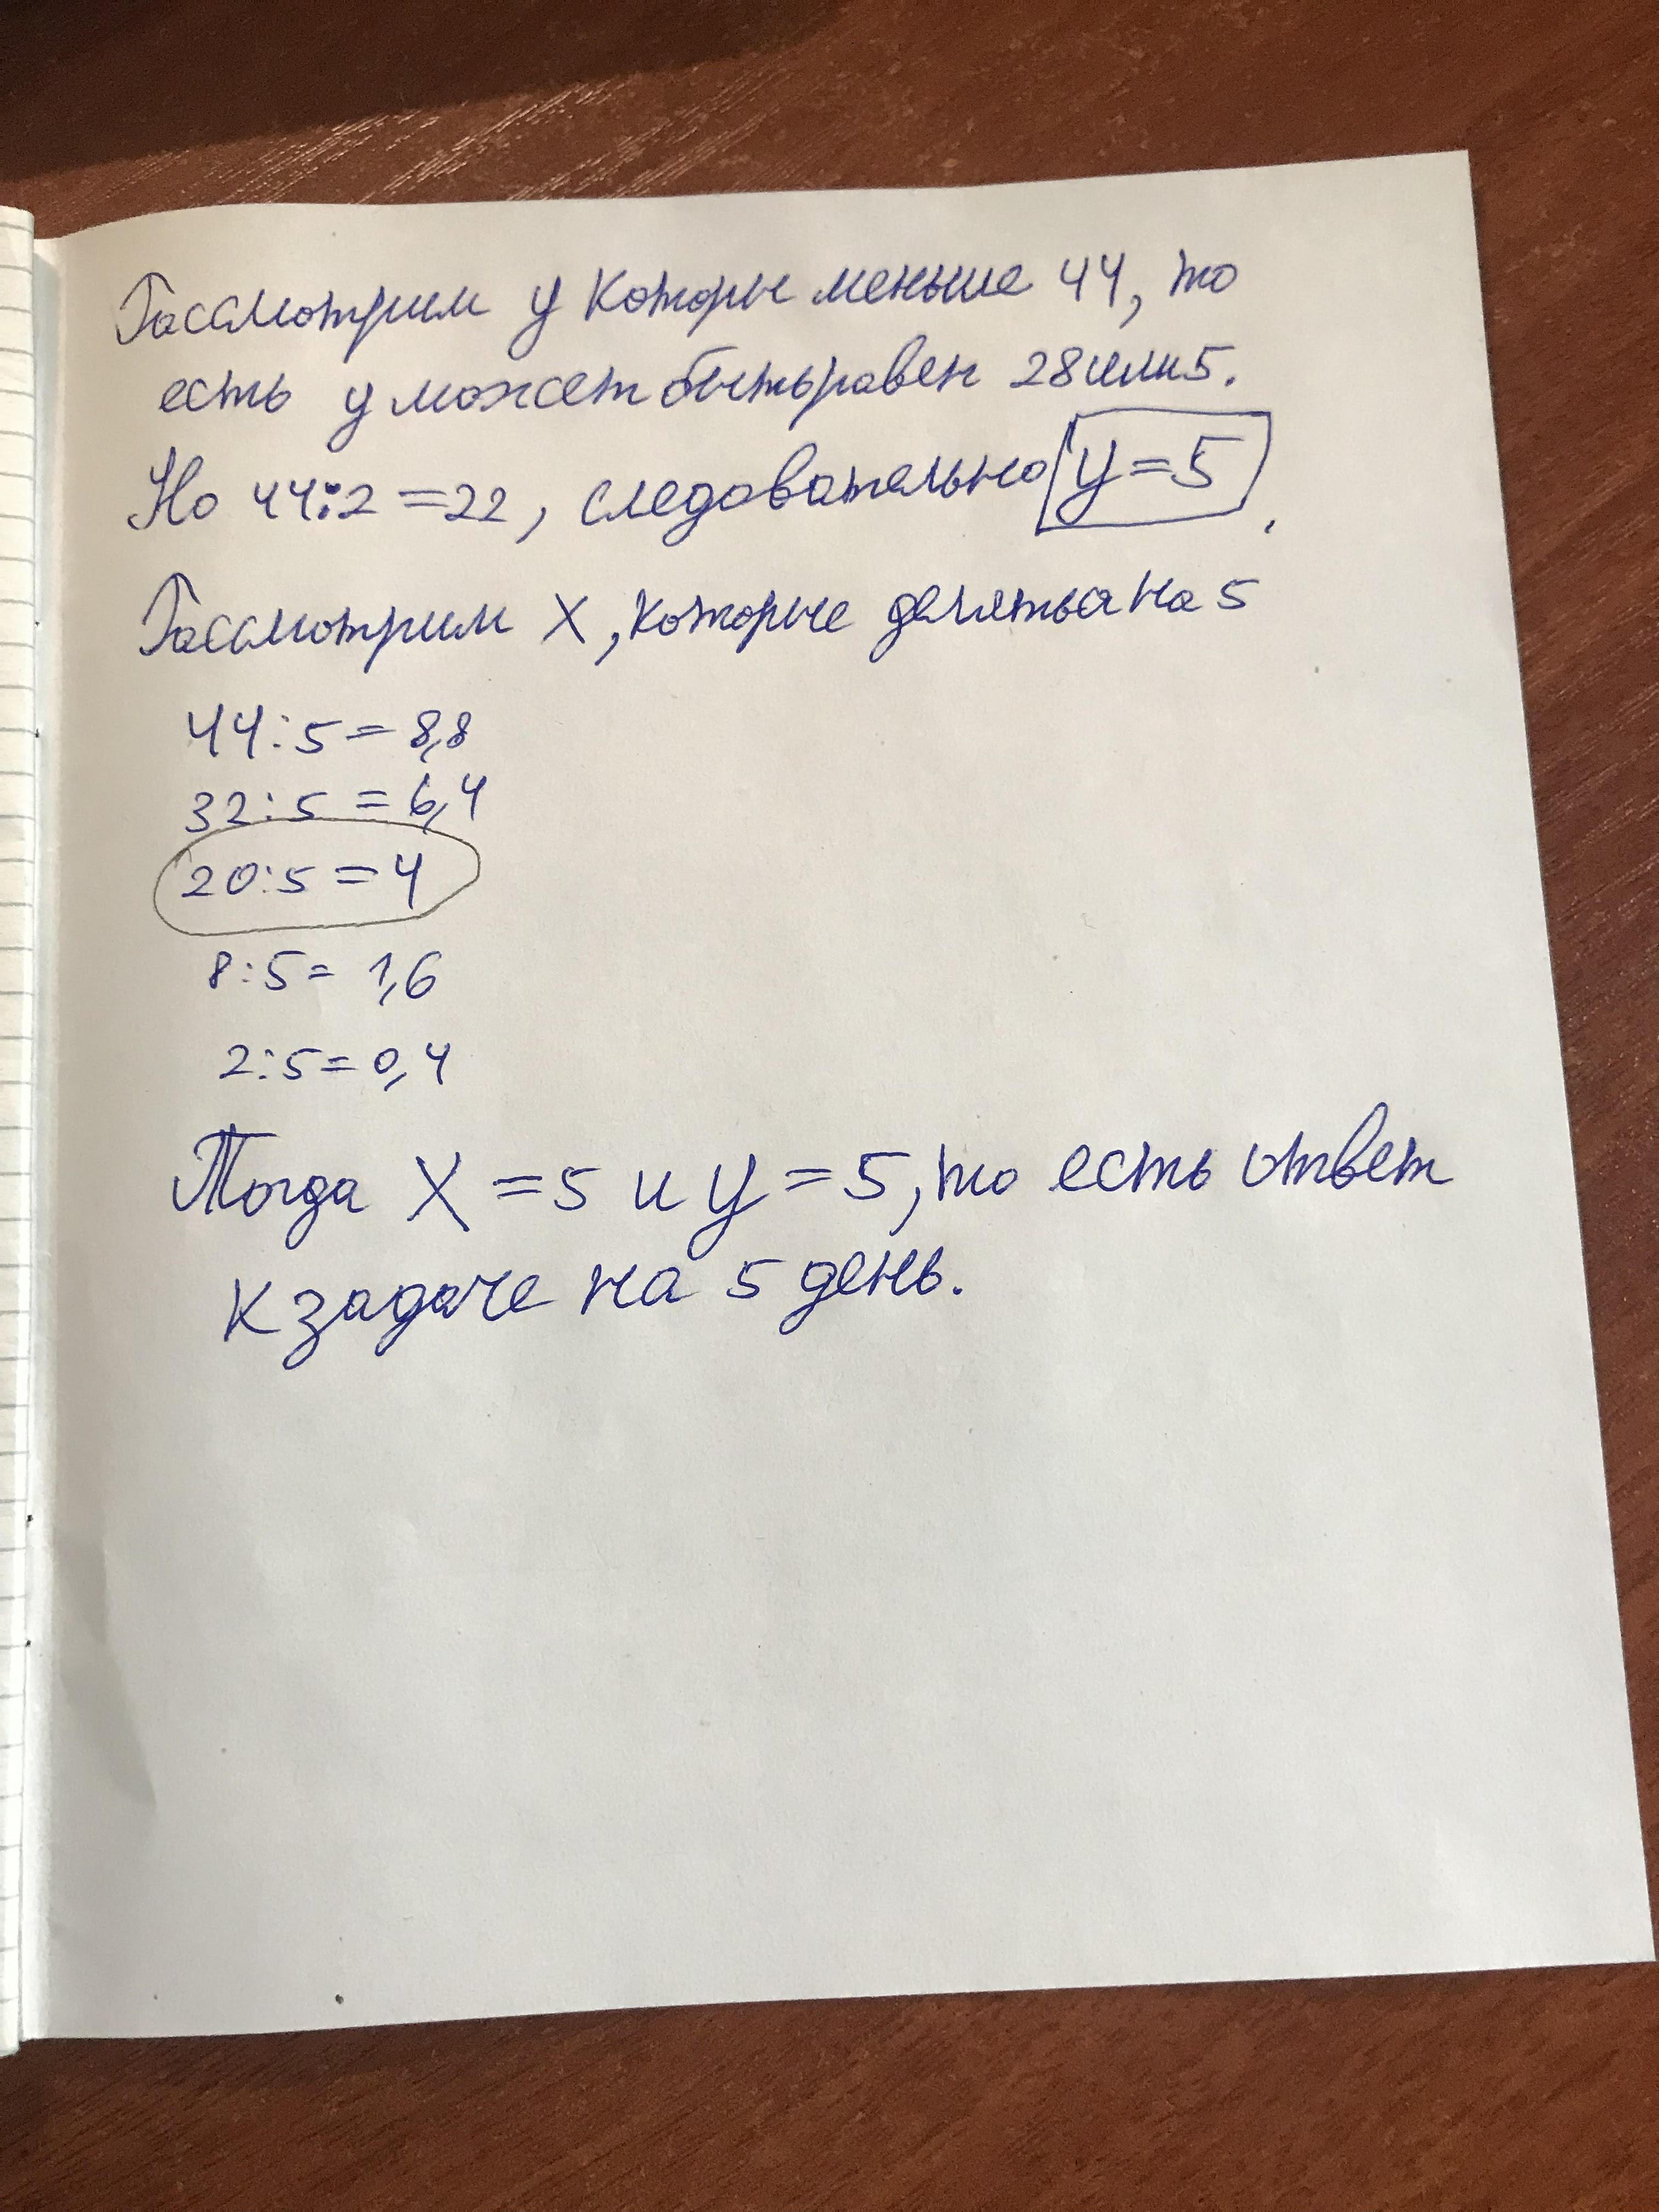 Рассмотрим у которые меньше 44, то
есть у может быть равен 28 или 5.
Но 44:2=22, следовательно у=5.
Рассмотрим Х, которые делятьа на 5
44:5=8,8
32:5=6,4
20:5=4
8:5=1,6
2:5=0,4
Тогда Х=5 и у=5, то есть ответ
к задаче на 5 день.